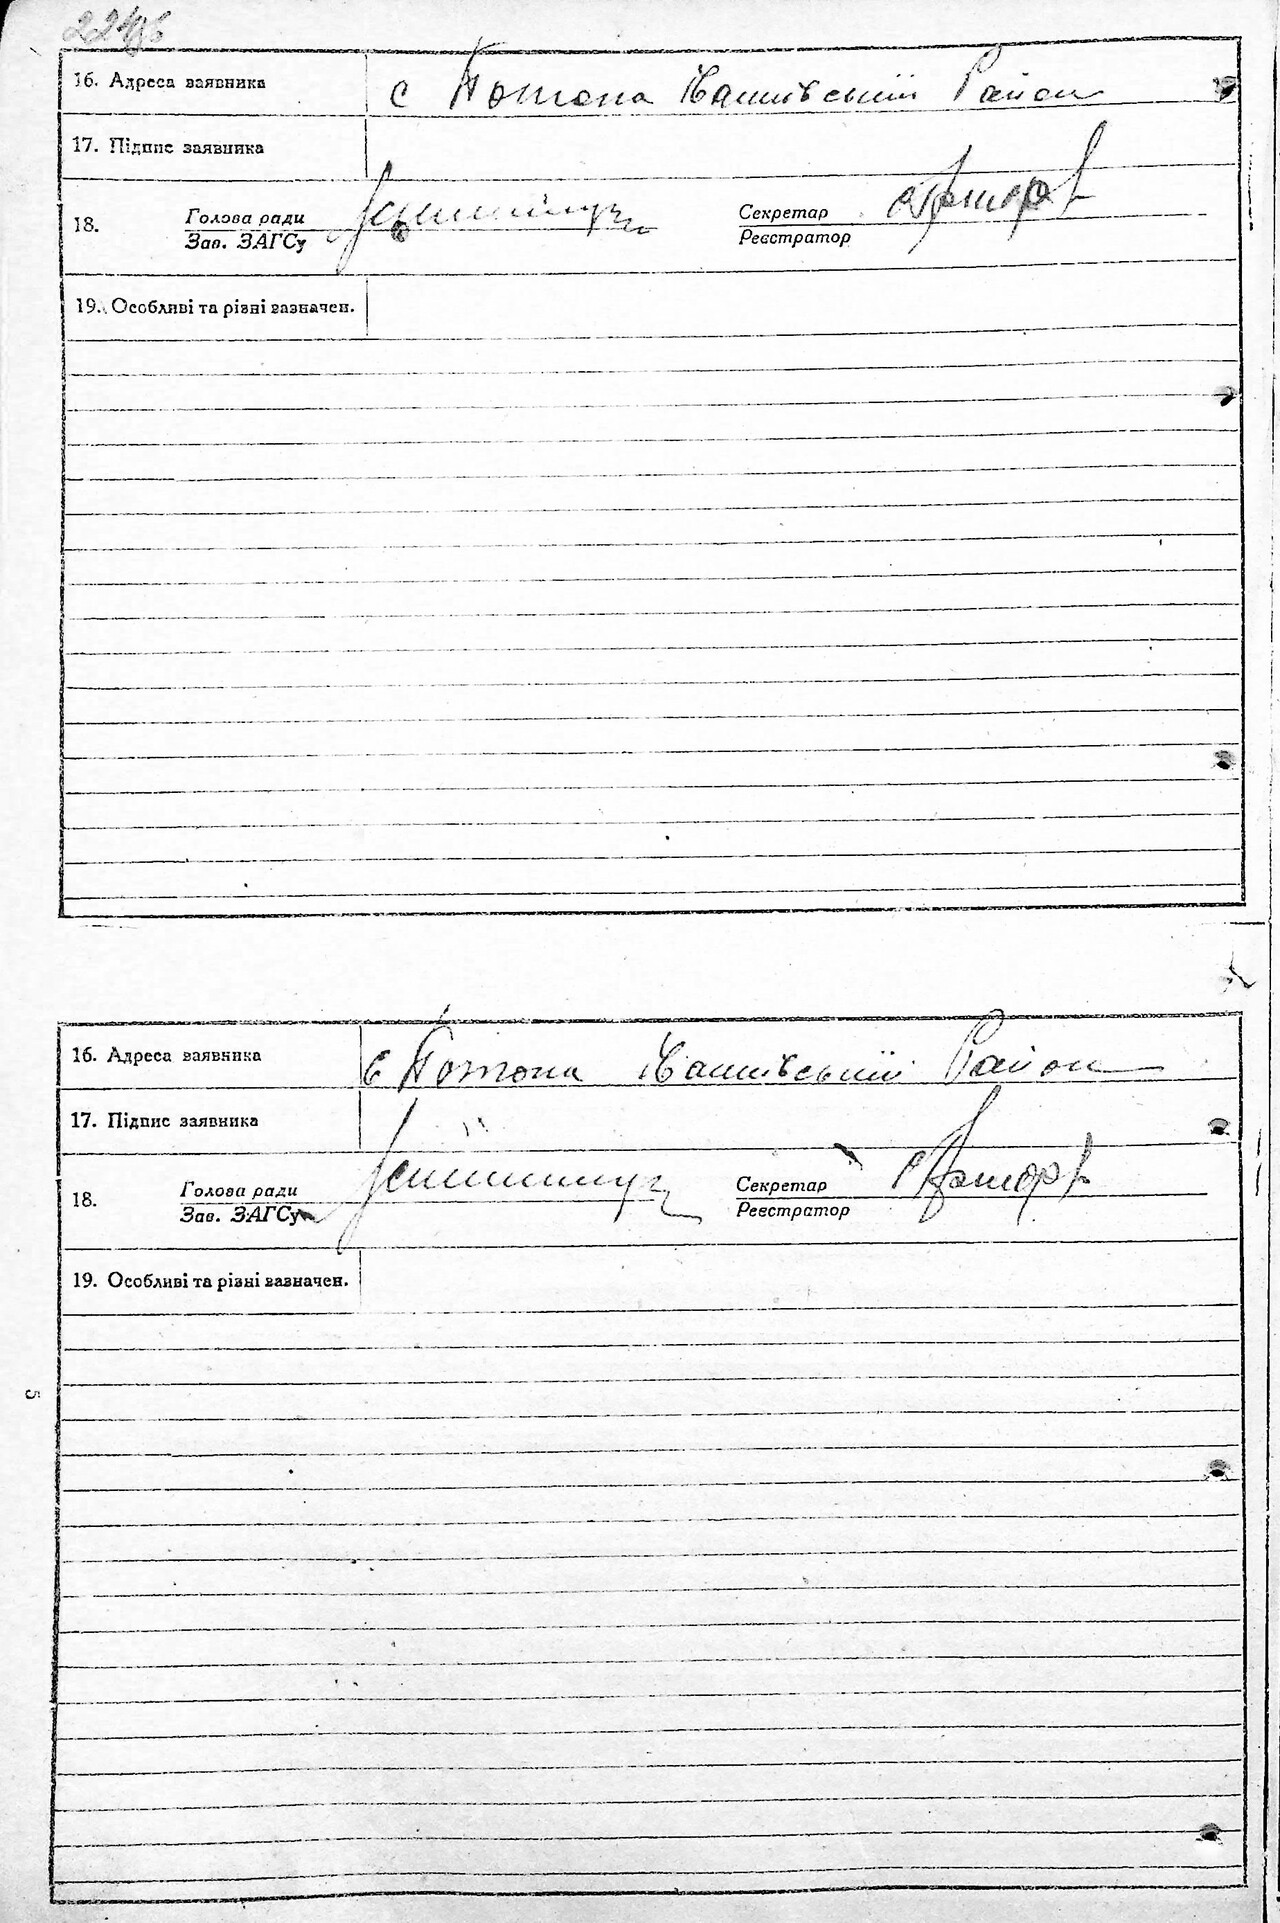 16. Адреса заявника с Потоки Район
17. Підпис заявника
18. Голова ради Секретар
Зав. ЗАГСу Реєстратор
19. Особливі та різні зазначен.
16. Адреса заявника с Потоки Район
17. Підпис заявника
18. Голова ради Секретар
Зав. ЗАГСу Реєстратор
19. Особливі та різні зазначен.
5